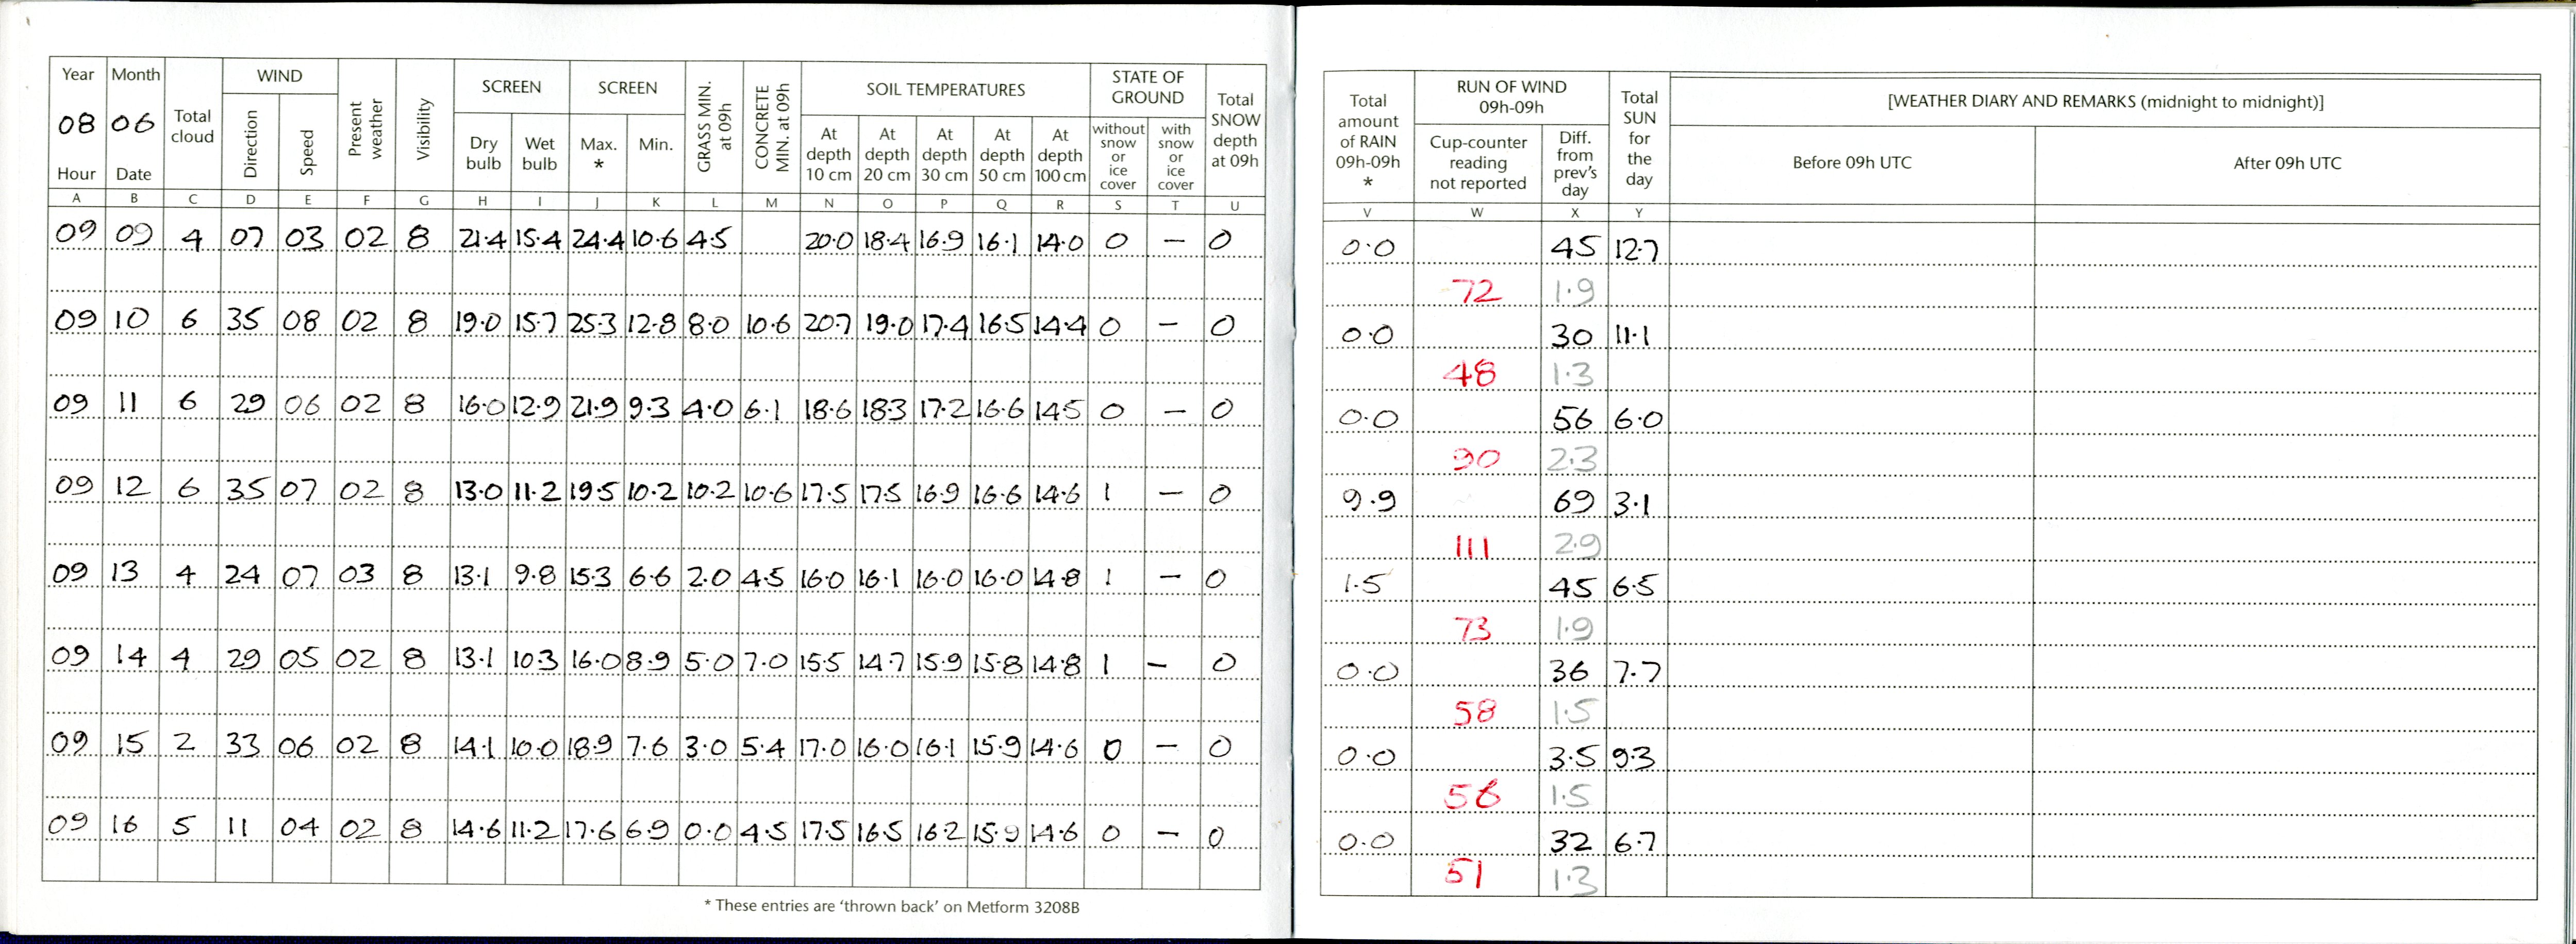 Year Month Total cloud WIND Present weather Visibility SCREEN SCREEN GRASS MIN. at 09h CONCRETE MIN. at 09h SOIL TEMPERATURES STATE OF GROUND Total SNOW depth at 09h
08 06 Direction Speed Dry bulb Wet bulb Max. * Min. At depth 10 cm At depth 20 cm At depth 30 cm At depth 50 cm At depth 100 cm without snow or ice cover with snow or ice cover
Hour Date
A B C D E F G H I J K L M N O P Q R S T U
09 09 4 07 03 02 8 21.4 15.4 24.4 10.6 4.5 20.0 18.4 16.9 16.1 14.0 0 — 0
09 10 6 35 08 02 8 19.0 15.7 25.3 12.8 8.0 10.6 20.7 19.0 17.4 16.5 14.4 0 — 0
09 11 6 29 06 02 8 16.0 12.9 21.9 9.3 4.0 6.1 18.6 18.3 17.2 16.6 14.5 0 — 0
09 12 6 35 07 02 8 13.0 11.2 19.5 10.2 10.2 10.6 17.5 17.5 16.9 16.6 14.6 1 — 0
09 13 4 24 07 03 8 13.1 9.8 15.3 6.6 2.0 4.5 16.0 16.1 16.0 16.0 14.8 1 — 0
09 14 4 29 05 02 8 13.1 10.3 16.0 8.9 5.0 7.0 15.5 14.7 15.9 15.8 14.8 1 — 0
09 15 2 33 06 02 8 14.1 10.0 18.9 7.6 3.0 5.4 17.0 16.0 16.1 15.9 14.6 0 — 0
09 16 5 11 04 02 8 14.6 11.2 17.6 6.9 0.0 4.5 17.5 16.5 16.2 15.9 14.6 0 — 0
* These entries are ‘thrown back’ on Metform 3208B
Total amount of RAIN 09h-09h * RUN OF WIND 09h-09h Total SUN for the day [WEATHER DIARY AND REMARKS (midnight to midnight)]
Cup-counter reading not reported Diff. from prev's day Before 09h UTC After 09h UTC
V W X Y
0.0 45 12.7
72 1.9
0.0 30 11.1
48 1.3
0.0 56 6.0
90 2.3
9.9 69 3.1
111 2.9
1.5 45 6.5
73 1.9
0.0 36 7.7
58 1.5
0.0 3.5 9.3
56 1.5
0.0 32 6.7
51 1.3